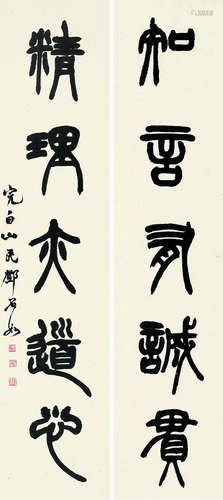 知言有誠貫
精理亦道心
完白山民鄧石如